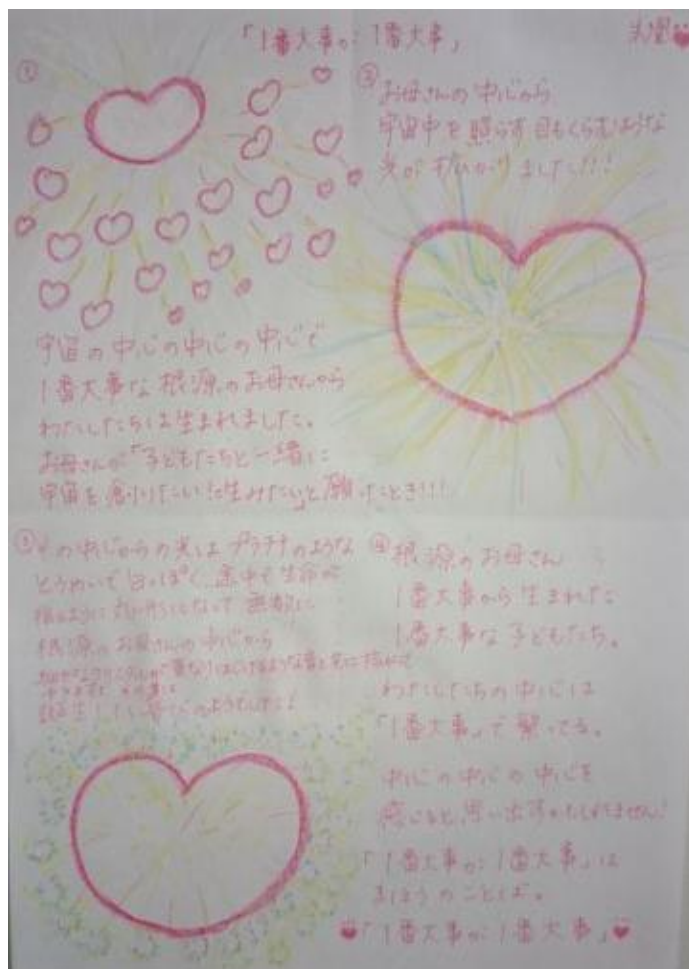 「1番大事が1番大事」
①
宇宙の中心の中心の中心で
1番大事な根源のお母さんから
わたしたちは生まれました。
お母さんが「子どもたちと一緒に
宇宙を創りたい」「生みたい」と願ったとき!!!
②
お母さんの中心から
宇宙中を照らす目もくらむような
光が拡がりました!!!
③その中心からの光はプラチナのような
とうめいで白っぽく途中で生命が
無数に
根源のお母さんの中心から
④根源のお母さん
1番大事から生まれた
1番大事な子どもたち。
わたしたちの中心は
「1番大事」で繋ってる。
中心の中心の中心を
感じると思い出すかもしれません!
「1番大事が1番大事」は
まほうのことば。
「1番大事が1番大事」